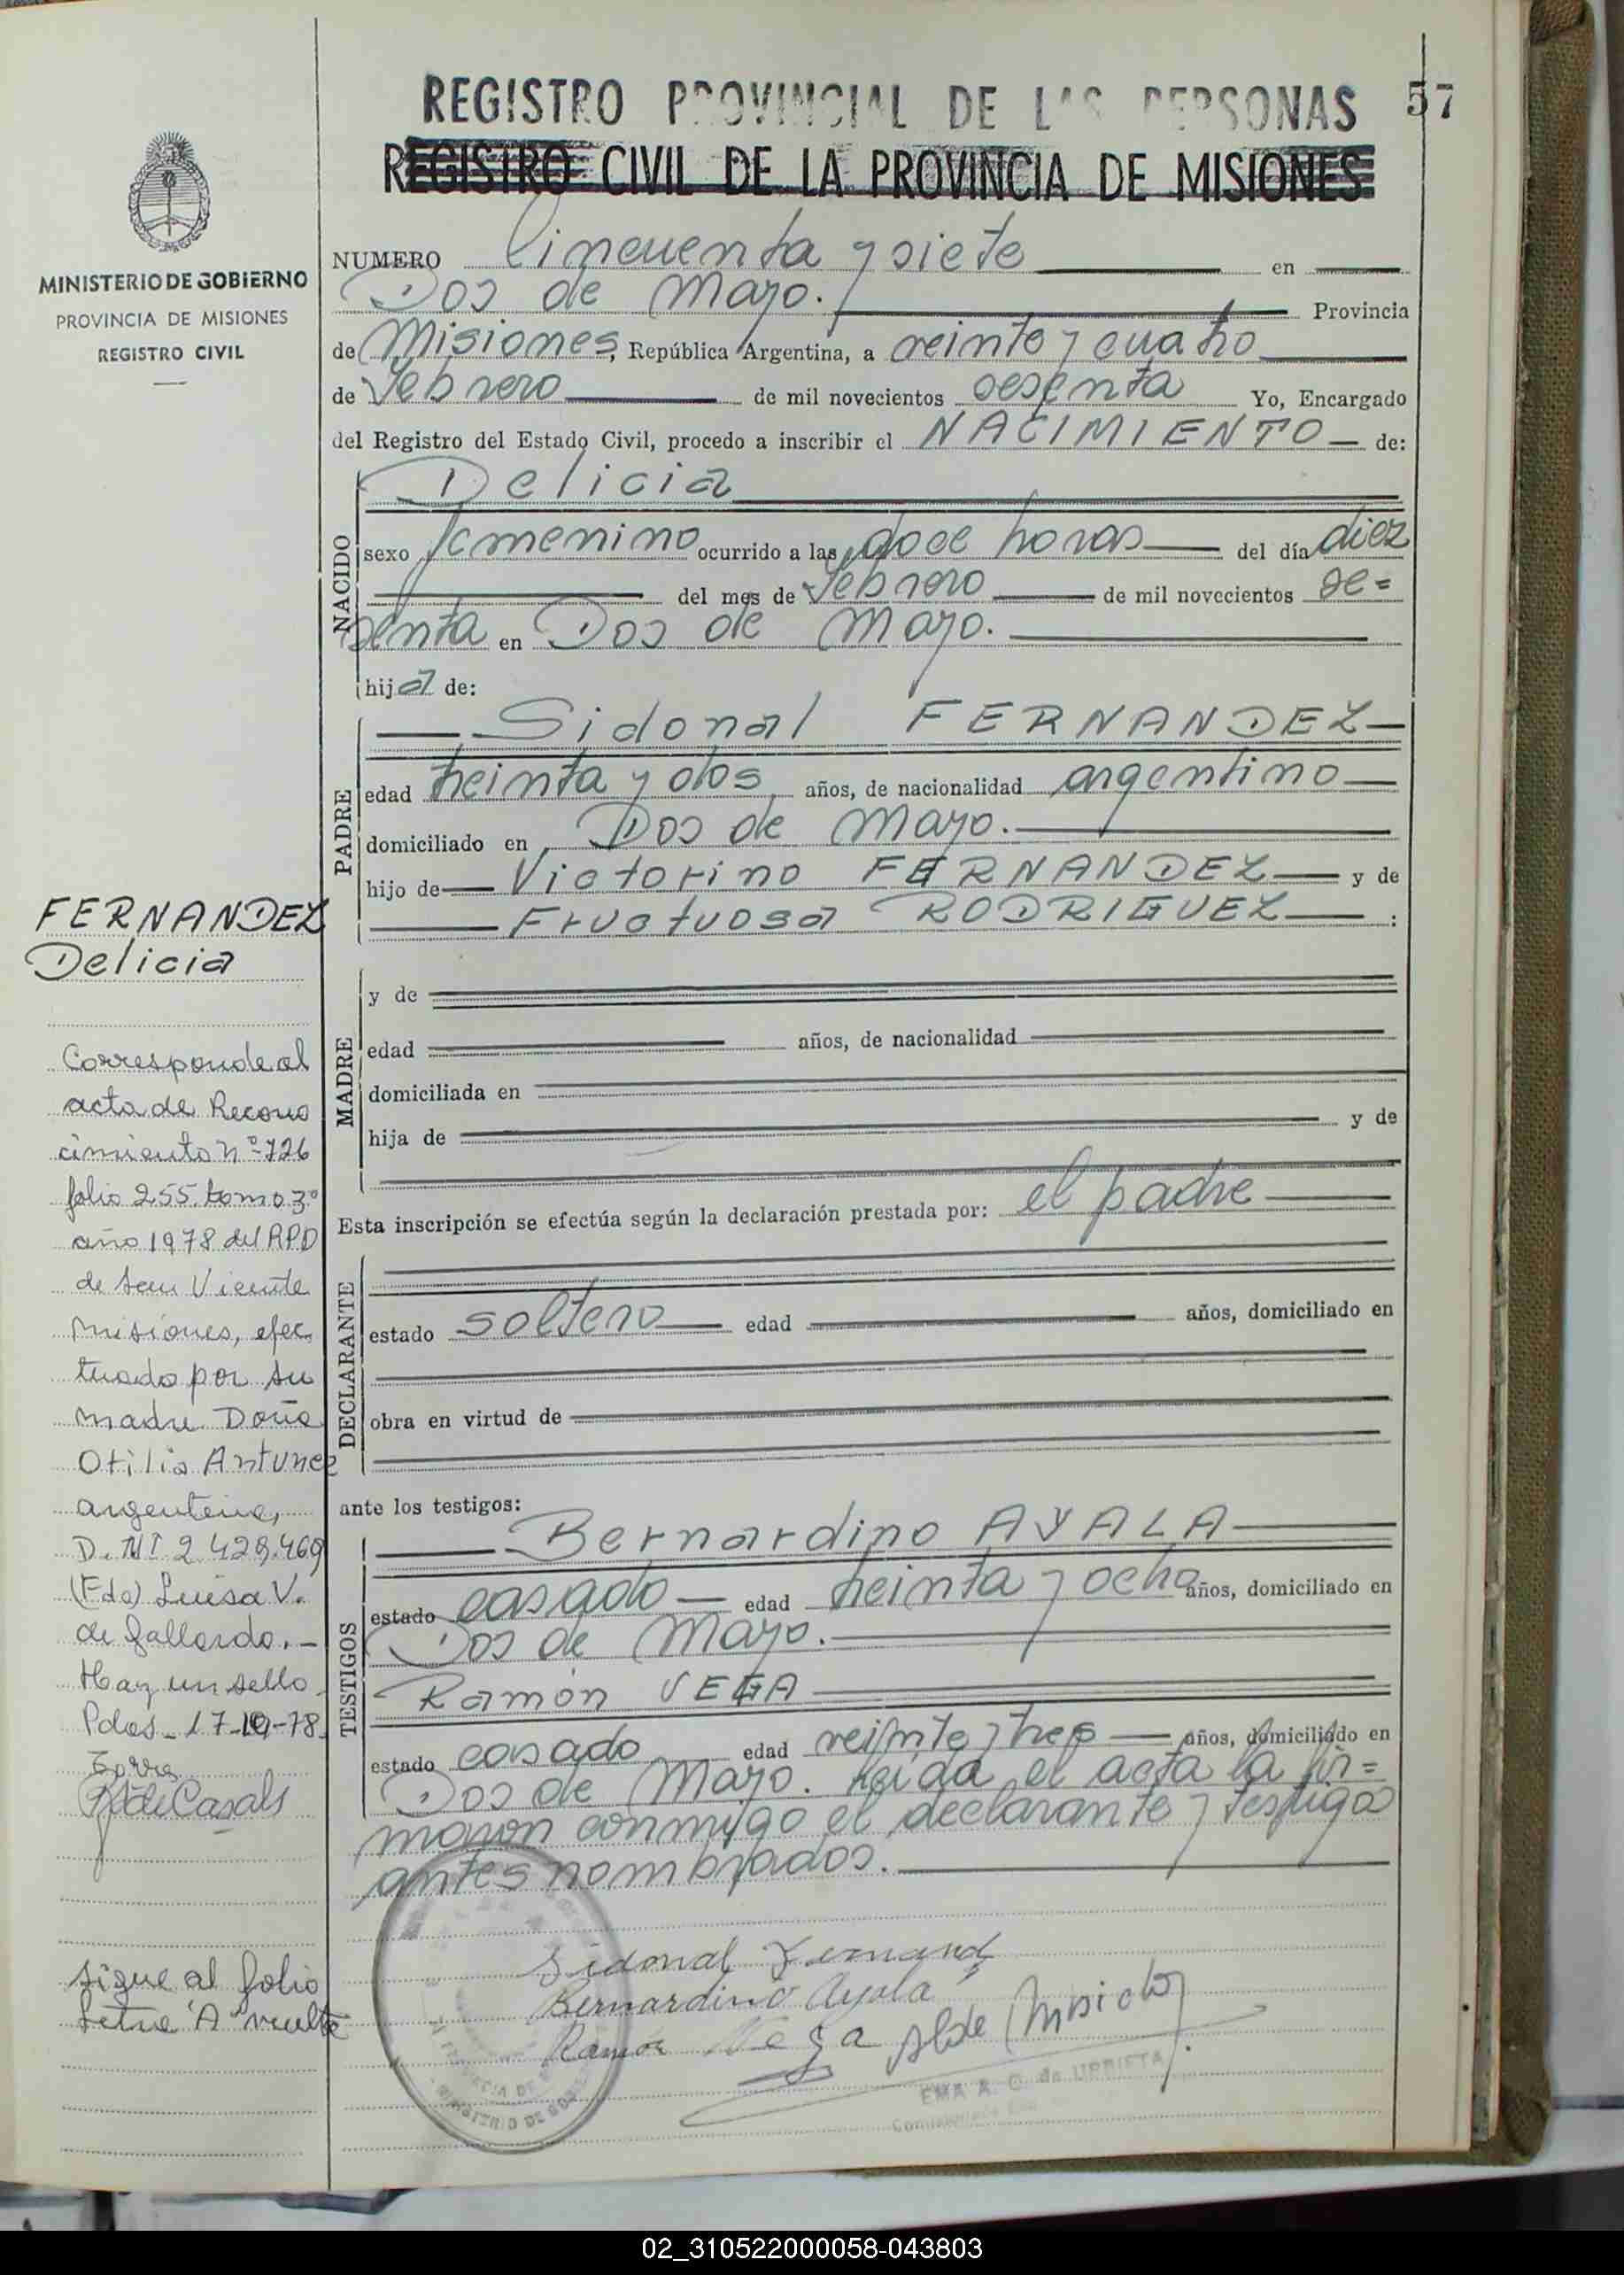 REGISTRO PROVINCIAL DE LAS PERSONAS 57
REGISTRO CIVIL DE LA PROVINCIA DE MISIONES
MINISTERIO DE GOBIERNO
PROVINCIA DE MISIONES
REGISTRO CIVIL
NUMERO Cincuenta y siete en
Dos de Mayo. Provincia
de Misiones, República Argentina, a veinte y cuatro
de Febrero de mil novecientos sesenta Yo, Encargado
del Registro del Estado Civil, procedo a inscribir el NACIMIENTO de:
NACIDO
Delicia
sexo femenino ocurrido a las doce horas del día diez
del mes de Febrero de mil novecientos se=
senta en Dos de Mayo.
hija de:
PADRE
Sidonal FERNANDEZ
edad treinta y dos años, de nacionalidad argentino
domiciliado en Dos de Mayo.
hijo de Victorino FERNANDEZ y de
Fructuosa RODRIGUEZ :
MADRE
y de
edad años, de nacionalidad
domiciliada en
hija de y de
Esta inscripción se efectúa según la declaración prestada por: el padre
DECLARANTE
estado soltero edad años, domiciliado en
obra en virtud de
ante los testigos:
TESTIGOS
Bernardino AYALA
estado casado edad treinta y ocho años, domiciliado en
Dos de Mayo.
Ramón VEGA
estado casado edad veinte y tres años, domiciliado en
Dos de Mayo. Leida el acta la fir=
maron conmigo el declarante y testigos
antes nombrados.
Sidonal Fernand
Bernardino Ayala
Ramón Vega
EMA A. C. de URRIETA
MINISTERIO DE GOB
FERNANDEZ
Delicia
Corresponde al
acta de Recono
cimiento Nº 726
folio 255. tomo 3º
año 1978 del RPD
de San Vicente
Misiones, efec
tuado por su
madre Doña
Otilia Antunez
argentina,
D.NI 2.429.469
(Fdo) Luisa V.
de Gallardo. -
Hay un sello
Pdas- 17-10-78.
de Casals
Sigue al folio
letra "A" vuelta
02_310522000058-043803